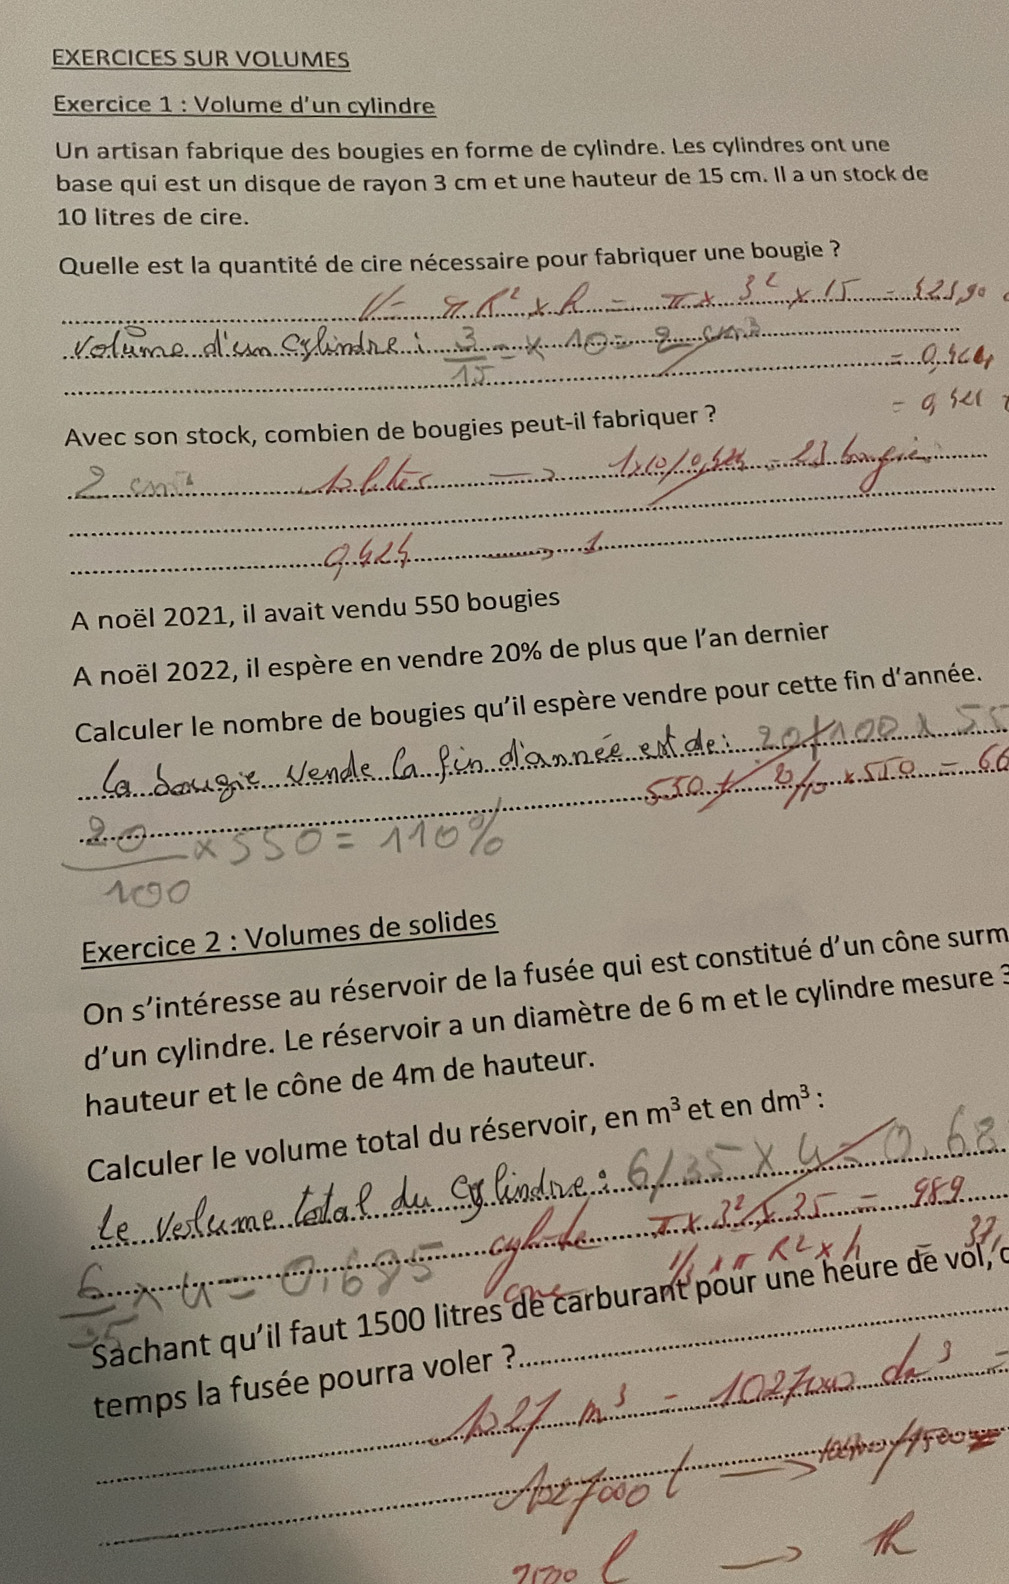 EXERCICES SUR VOLUMES
Exercice 1 : Volume d'un cylindre
Un artisan fabrique des bougies en forme de cylindre. Les cylindres ont une
base qui est un disque de rayon 3 cm et une hauteur de 15 cm. Il a un stock de
10 litres de cire.
Quelle est la quantité de cire nécessaire pour fabriquer une bougie ?
V = π R² x h = π x 3² x 15 =
Volume d'un cylindre : 3/15 = x 10 = 2 cm³
Avec son stock, combien de bougies peut-il fabriquer ?
2 cm³ 10 litres → = 23 bougies
0,424 → 1
A noël 2021, il avait vendu 550 bougies
A noël 2022, il espère en vendre 20% de plus que l'an dernier
Calculer le nombre de bougies qu'il espère vendre pour cette fin d'année.
La bougie vende la fin d'année est de : 20/100 x 55
550 + x 550 = 66
20/100 x 550 = 110%
Exercice 2 : Volumes de solides
On s'intéresse au réservoir de la fusée qui est constitué d'un cône surm
d'un cylindre. Le réservoir a un diamètre de 6 m et le cylindre mesure 3
hauteur et le cône de 4m de hauteur.
Calculer le volume total du réservoir, en m³ et en dm³ :
Le volume total du cylindre : 6/35 x 4 = 0,68
cylindre π x 3² x 35 = 989
6/35 x 4 = 0,685
cone 1/3 x π R² x h = 37,
Sachant qu'il faut 1500 litres de carburant pour une heure de vol, c
temps la fusée pourra voler ?
1027 m³ = 1027000 dm³ =
1027000 l →
1500 l → 1h